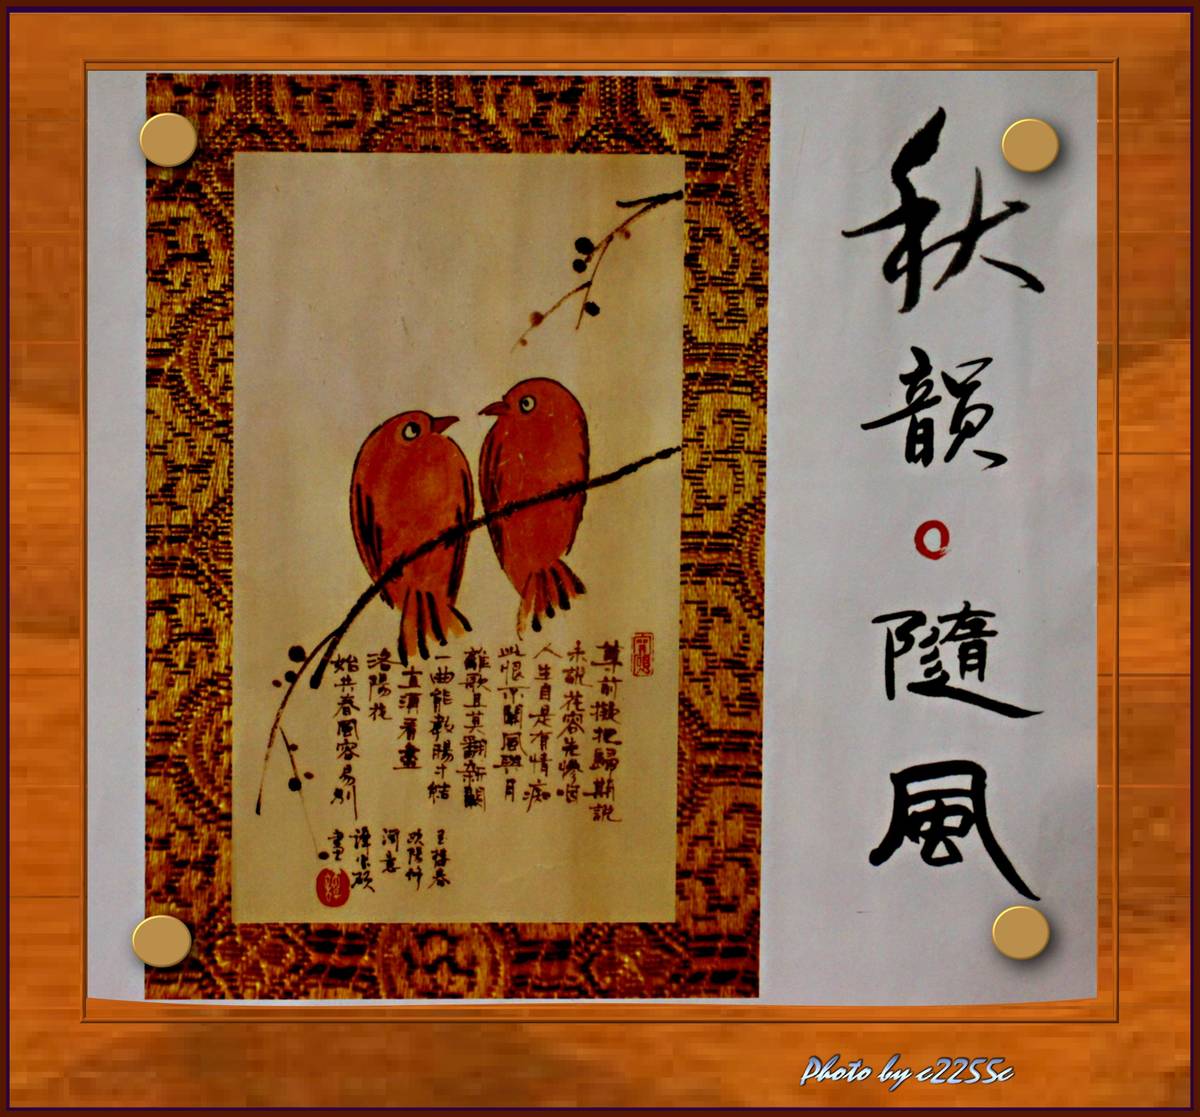 秋韻
隨風
尊前擬把歸期說
未說花容先慘咽
人生自是有情痴
此恨不關風與月
離歌且莫翻新闋
一曲能教腸寸結
直須看盡
洛陽花
始共春風容易別
玉樓春
歐陽修
詞意
畫
Photo by c2255c